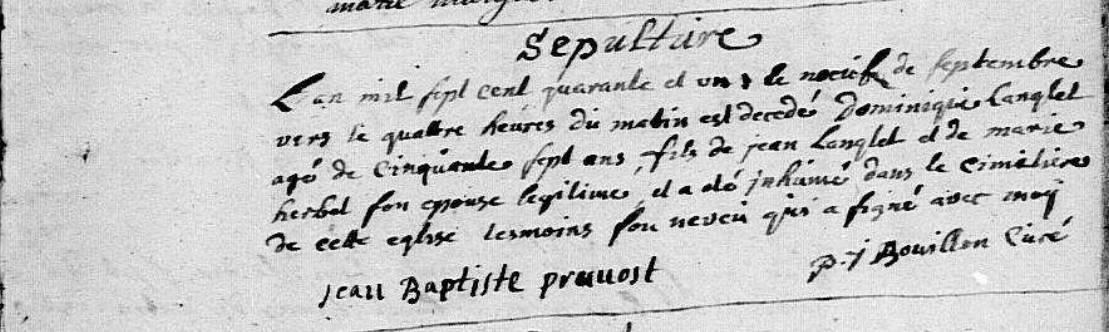 marie
Sepulture
L'an mil sept cent quarante et un le neuf de septembre
vers le quattre heures du matin est decedé Dominique Langlet
agé de cinquante sept ans fils de jean Langlet et de marie
herbet son epouse legitime, et a eté jnhumé dans le cimetiere
de cette eglise tesmoins son neveu qui a signé avec moy
jean Baptiste pruuost
p-j Bouillon Curé